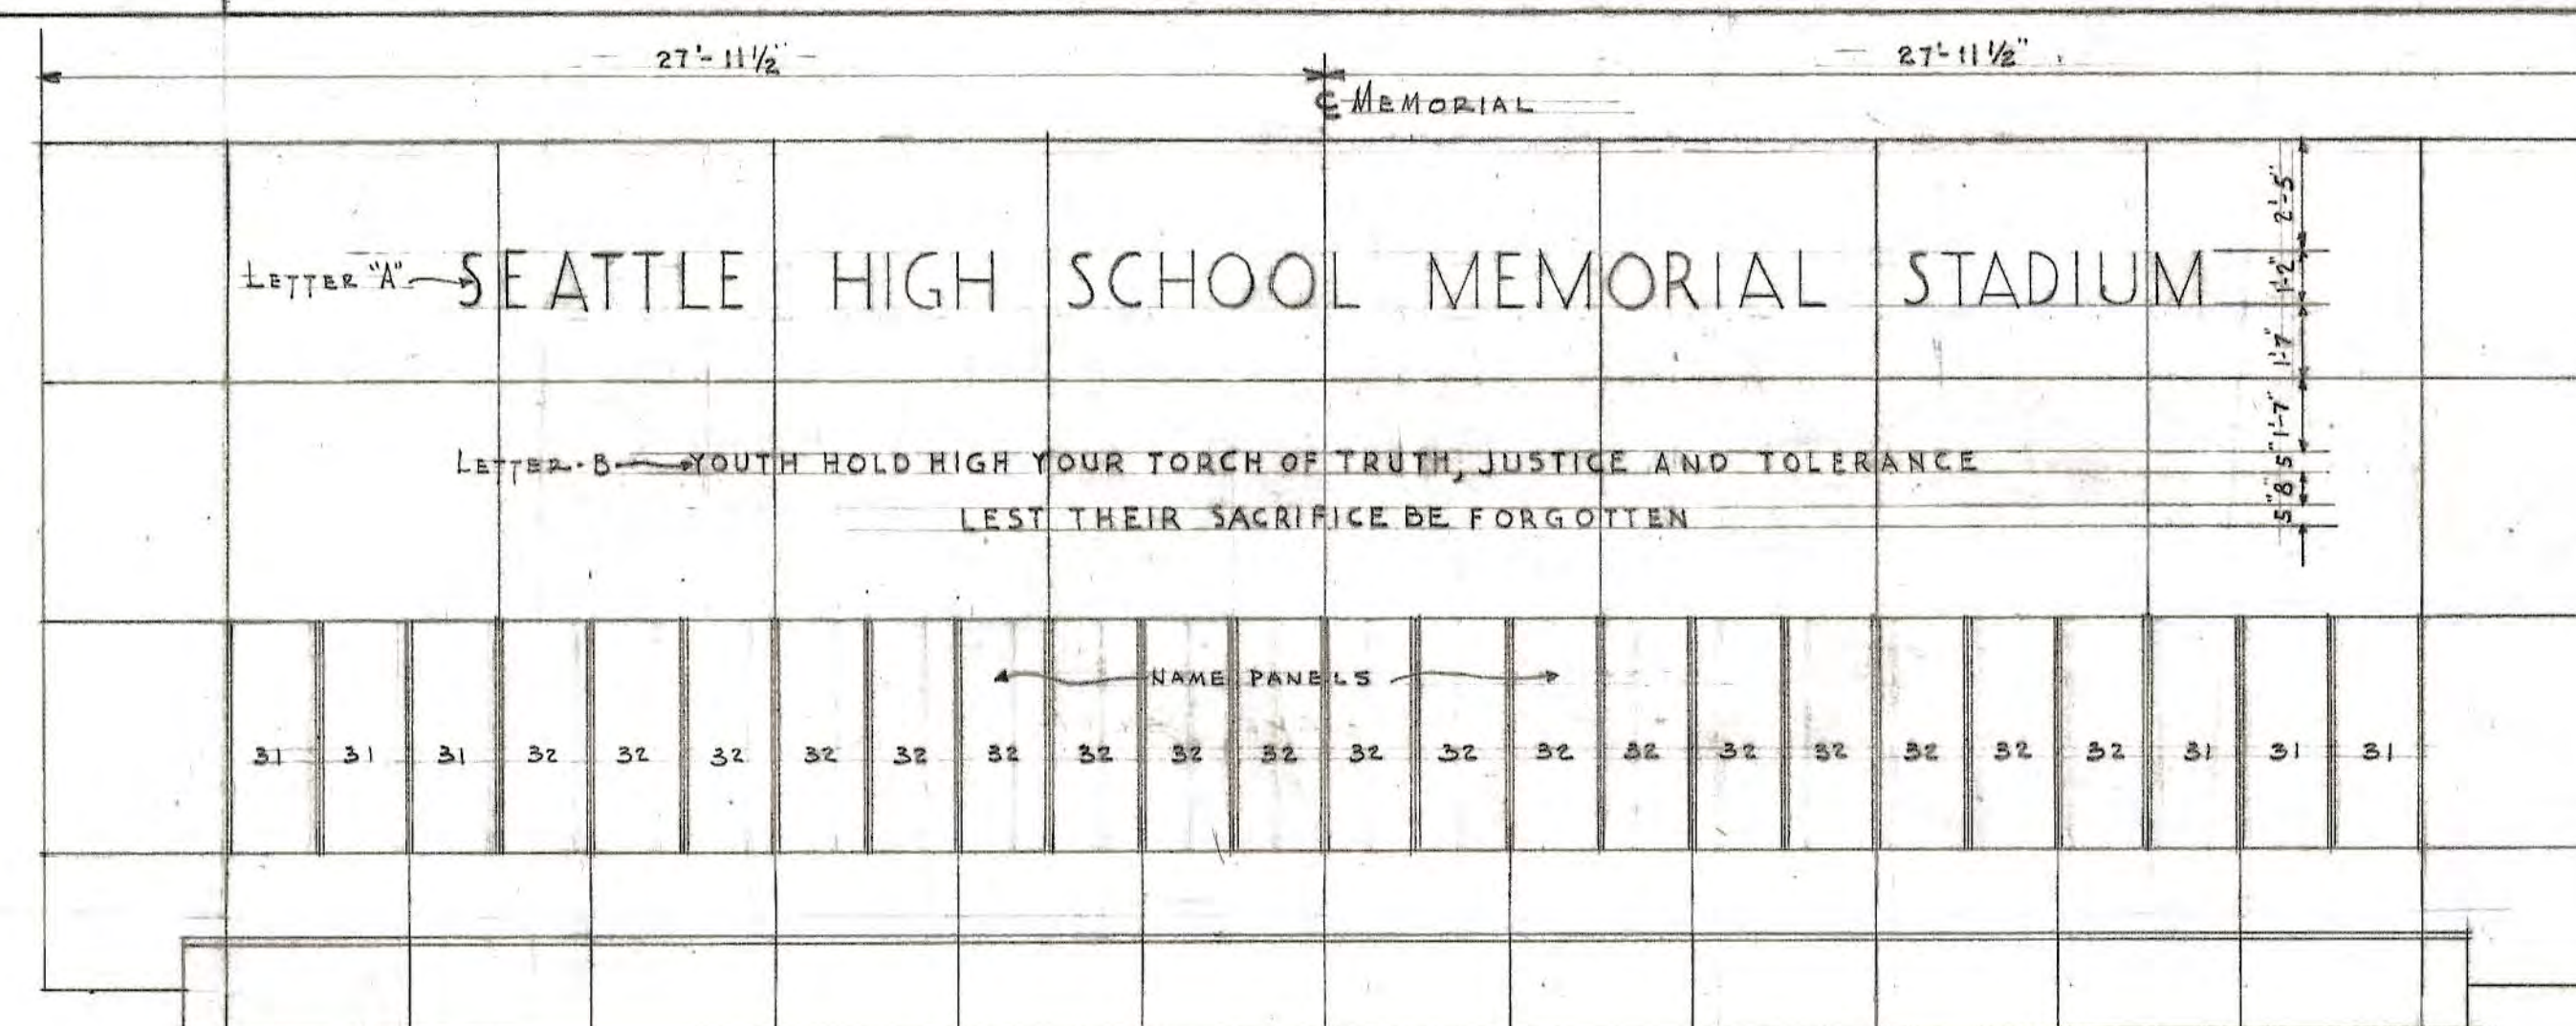 27'-11 1/2" 27'-11 1/2"
℄ MEMORIAL
2'-5"
LETTER "A" SEATTLE HIGH SCHOOL MEMORIAL STADIUM 1'-2"
1'-7"
1'-7"
LETTER-B YOUTH HOLD HIGH YOUR TORCH OF TRUTH, JUSTICE AND TOLERANCE 5"
8"
LEST THEIR SACRIFICE BE FORGOTTEN 5"
NAME PANELS
31 31 31 32 32 32 32 32 32 32 32 32 32 32 32 32 32 32 32 32 32 31 31 31